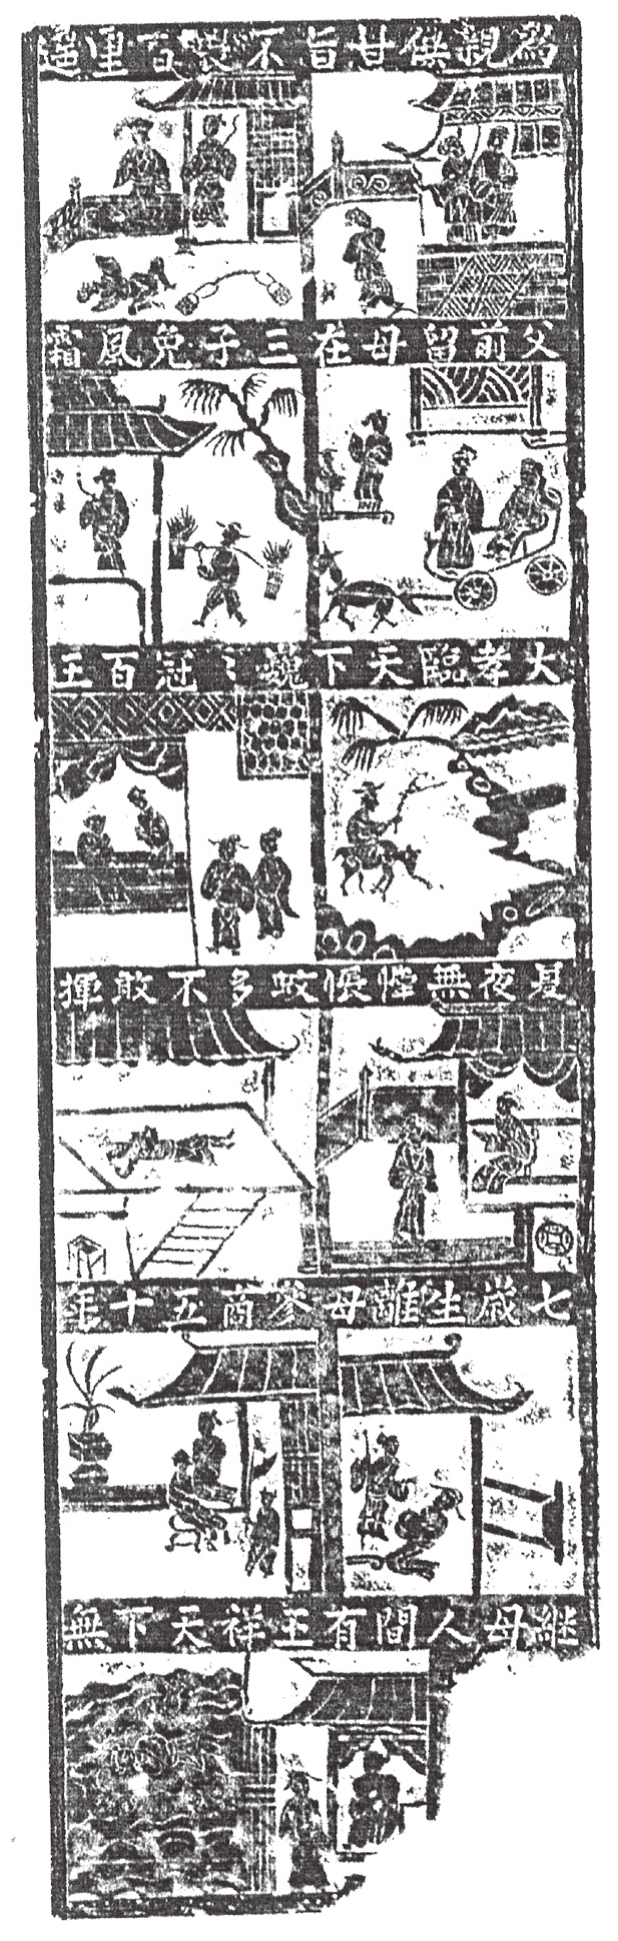 為親供甘旨不辭百里遙
父前留母在三子免風霜
大孝臨天下巍〻冠百王
夏夜無幃帳蚊多不敢揮
七歲生離母參商五十年
継母人間有王祥天下無